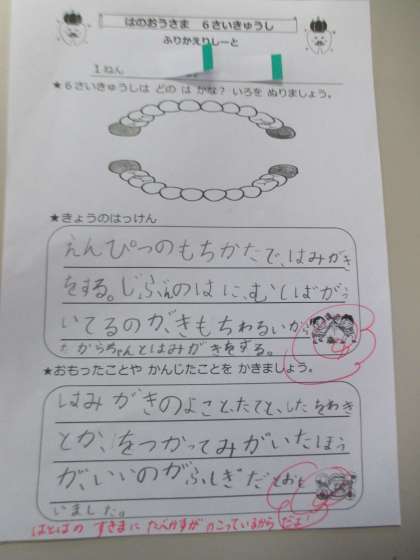 はのおうさま 6さいきゅうし
ふりかえりしーと
1ねん
★6さいきゅうしは どの は かな？ いろを ぬりましょう。
★きょうのはっけん
えんぴつのもちかたで、はみがき
をする。じぶんのはに、むしばがつ
いてるのが、きもちわるいから
だからちゃんとはみがきをする。
★おもったことや かんじたことを かきましょう。
はみがきのよこと、たてと、した
とか、をつかってみがいたほう
が、いいのがふしぎだとおも
いました。
はとはの すきまに たべかすが のこっているから だよ！